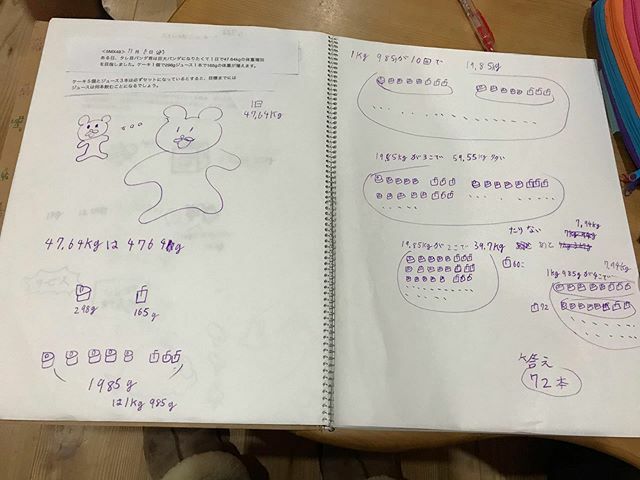 <SMX48> 11月5日(火)
ある日、タレ目パンダ君は巨大パンダになりたくて1日で47.64kgの体重増加
を目指しました。ケーキ1個で298gジュース1本で165gの体重が増えます。
ケーキ5個とジュース3本は必ずセットになっているとすると、目標までには
ジュースは何本飲むことになるでしょう。
1日
47,64Kg
47,64Kgは 47640g
298g
165g
1985g
は1Kg 985g
1Kg 985gが10回で 19,85Kg
19,85Kgが3こで 59,55Kg
19,85Kgが2こで 39,7Kg
たりない
7,94Kg
あと
60こ
7,94Kg
1Kg 985gが4こで
72
答え
72本